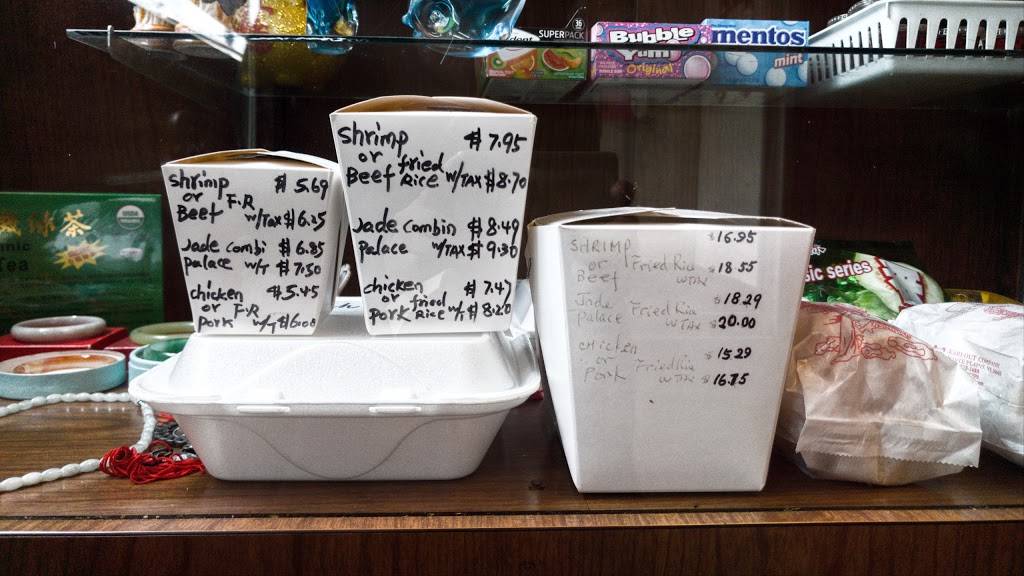 36
SUPERPACK
Bubble
Yum
Original
mentos
mint
shrimp $ 5.69
or F.R
Beef w/TAX $ 6.25
Jade combi $ 6.85
palace w/T $ 7.50
chicken $ 5.45
or F.R
pork w/T $ 6.00
shrimp $ 7.95
or fried
Beef Rice w/TAX $ 8.70
Jade combin $ 8.49
palace w/TAX $ 9.30
chicken $ 7.47
or fried
pork Rice w/T $ 8.20
SHRIMP $ 16.95
or Fried Rice $ 18.55
Beef w TAX
Jade Fried Rice $ 18.29
palace w TAX $ 20.00
chicken $ 15.29
or Fried Rice
Pork w TAX $ 16.75
茶
USDA
nic
Tea
ic series